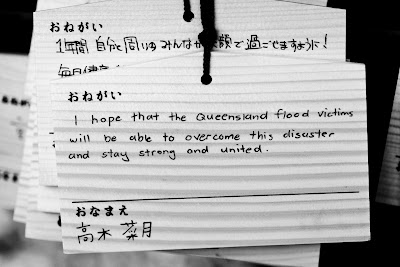 おねがい
1年間 自分と周りのみんなが笑顔で過ごせますように!
毎日健康
おねがい
I hope that the Queensland flood victims
will be able to overcome this disaster
and stay strong and united.
おなまえ
高木 菜月